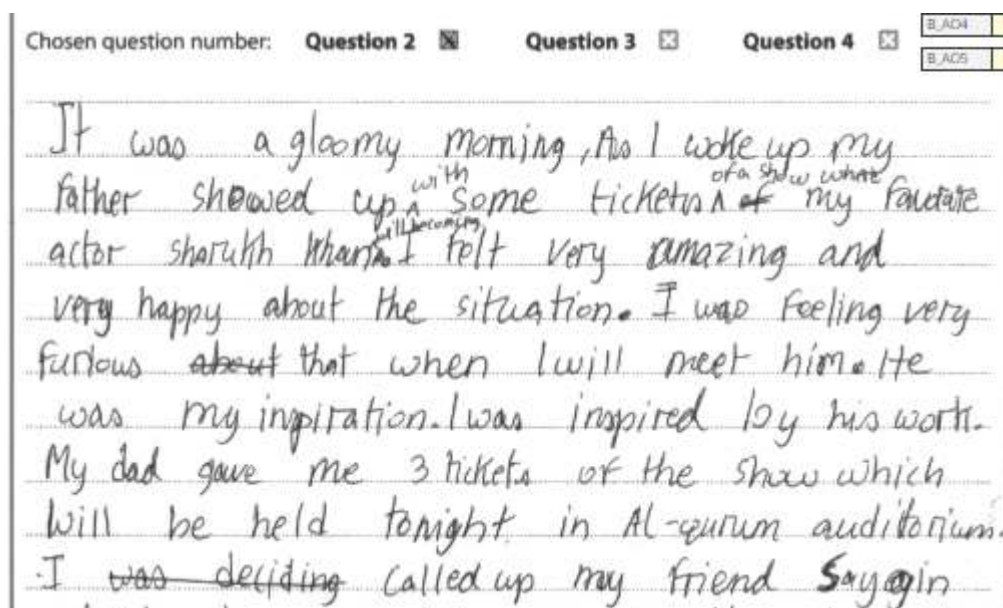 Chosen question number: Question 2 Question 3 Question 4
B_AO4
B_AO5
It was a gloomy morning, As I woke up my
father showed up with some tickets of a show where my favorate
actor sharukh khan will be coming. I felt very amazing and
very happy about the situation. I was feeling very
furious about that when I will meet him. He
was my inspiration. I was inspired by his work.
My dad gave me 3 tickets of the show which
will be held tonight in Al-qurum auditorium.
I was deciding called up my friend